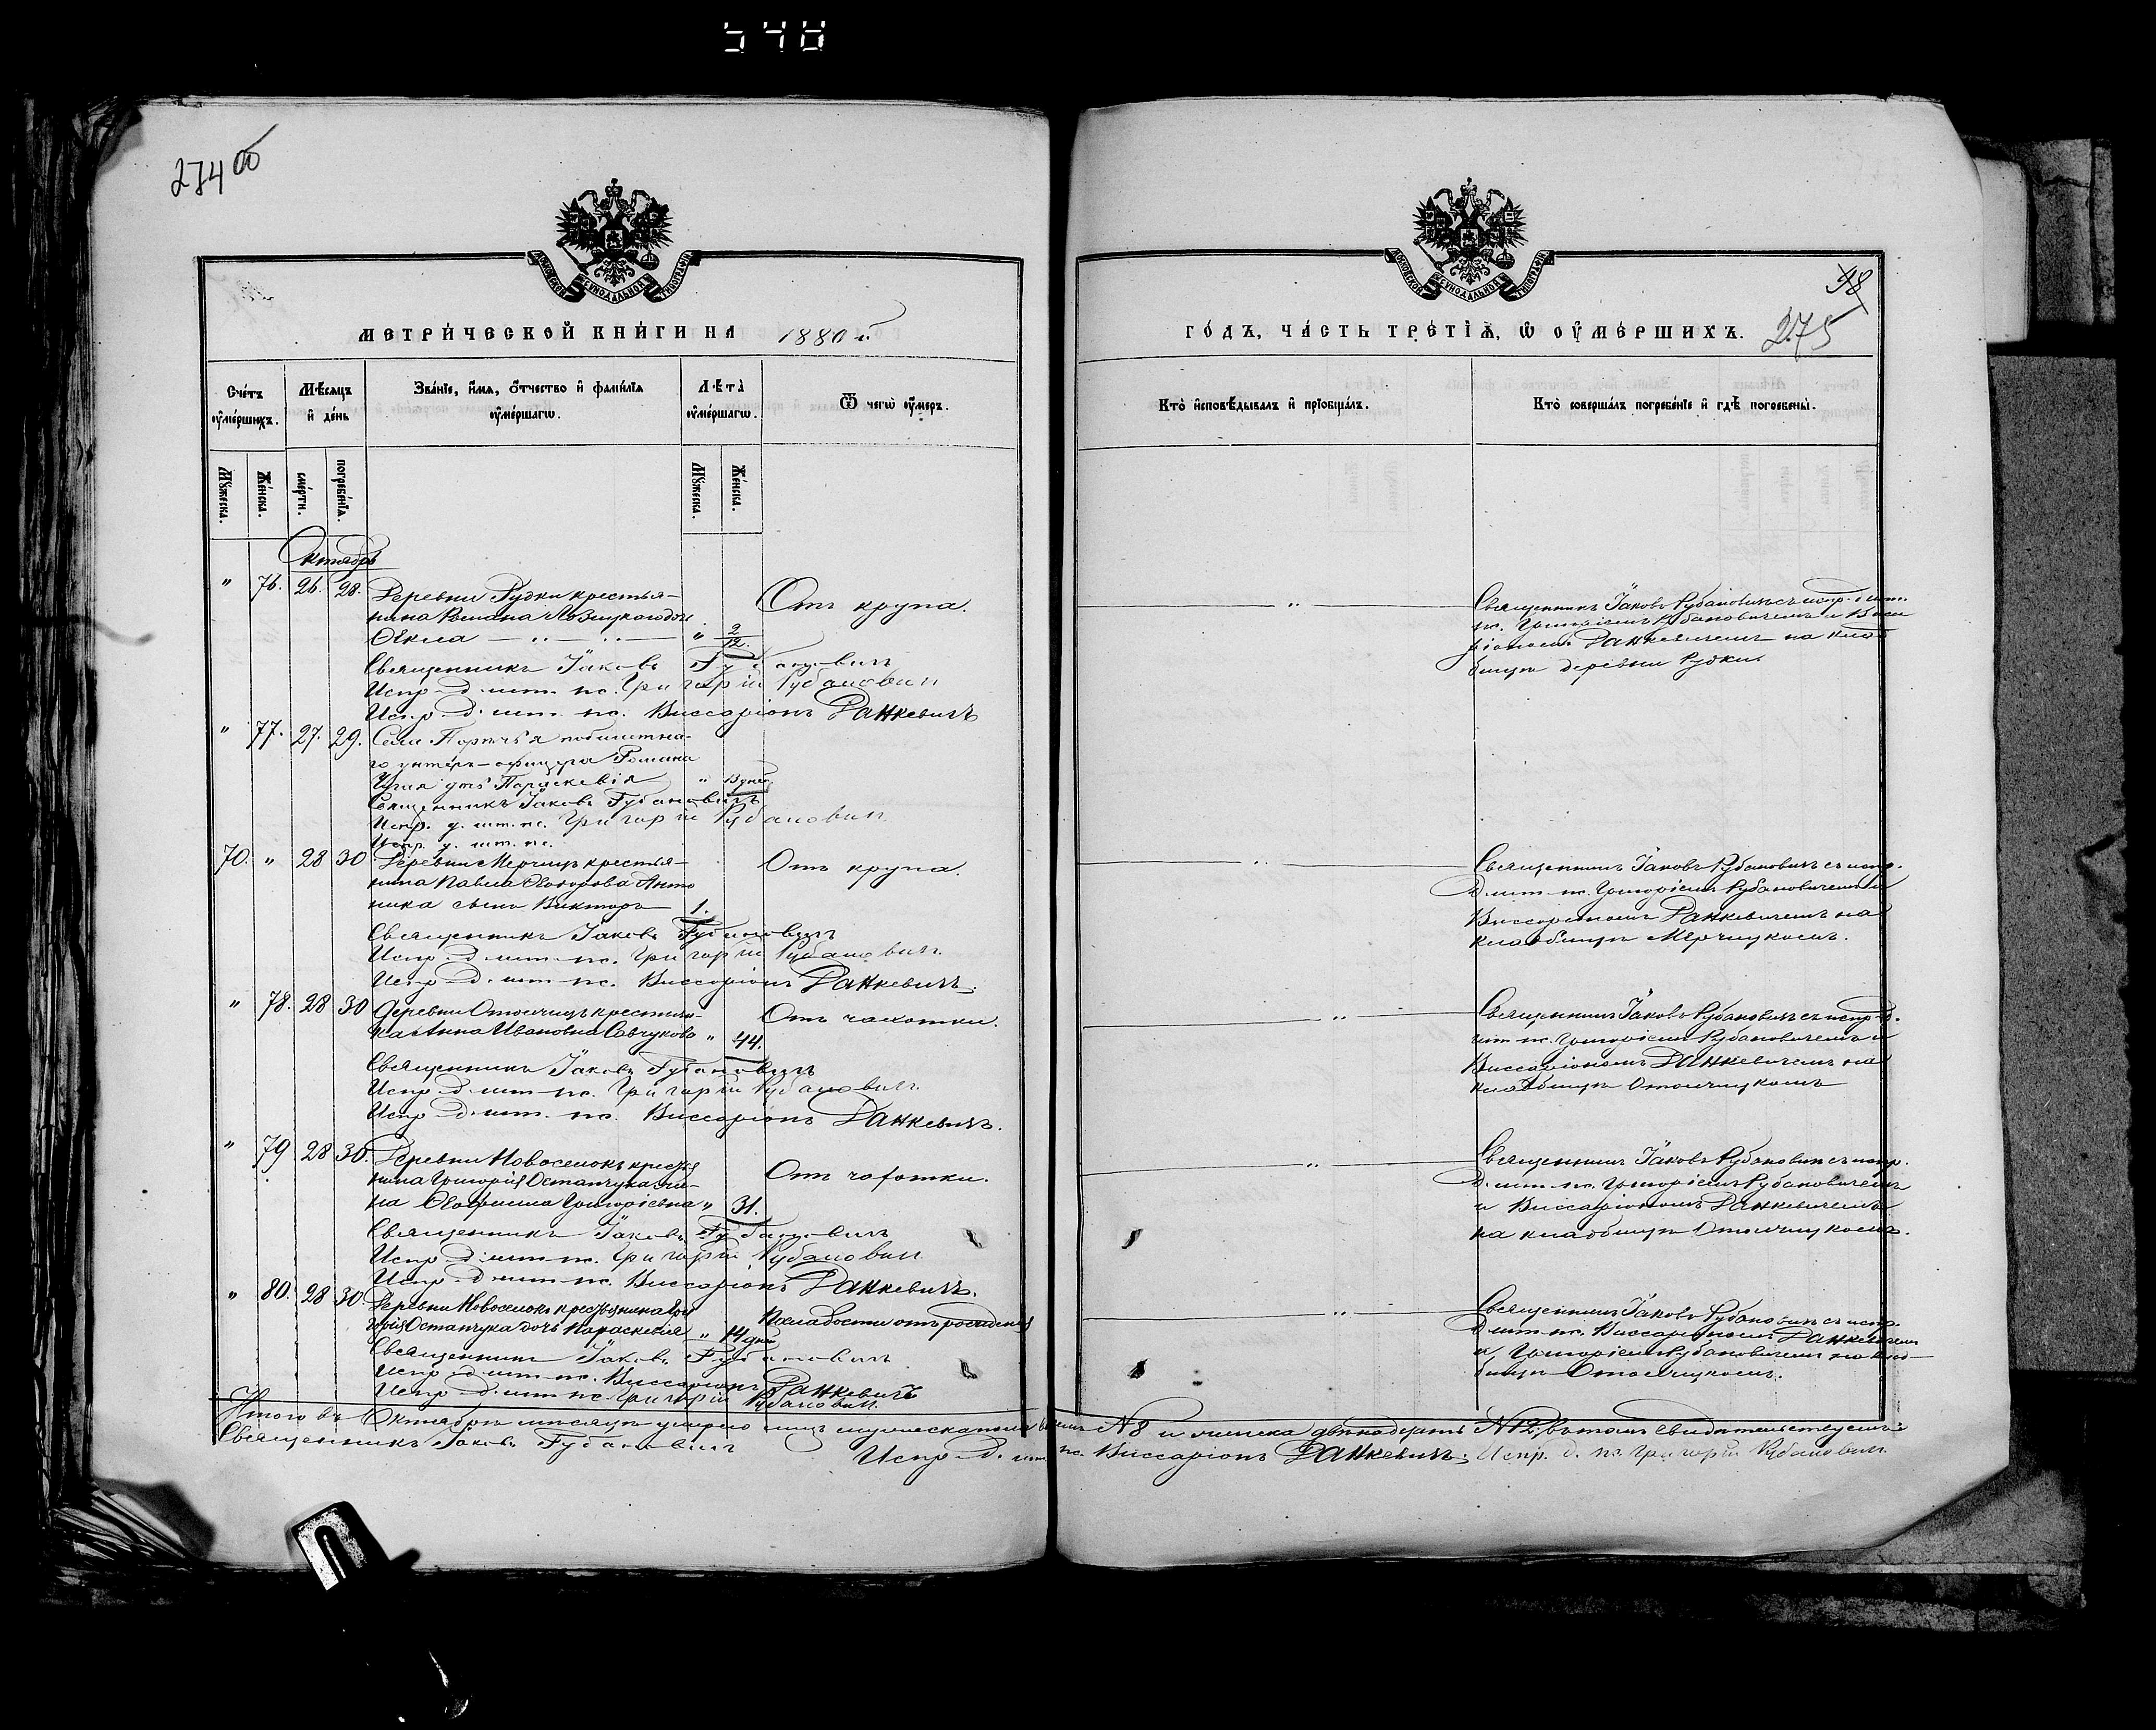 548
274 об
МОСКОВСКОЙ СѴНОДАЛЬНОЙ ТИПОГРАФІИ
МЕТРИ́ЧЕСКОЙ КНИ́ГИ НА 1880 г.
Сче́тъ ᲂу҆ме́ршихъ.
Мѣ́сяцъ и҆ де́нь
Зва́нїе, и҆́мѧ, ѻ҆́тчество и҆ фамі́лїѧ ᲂу҆ме́ршагѡ.
Лѣ́та ᲂу҆ме́ршагѡ.
Ѿ чегѡ̀ ᲂу҆́меръ.
Мꙋ́жеска.
Же́нска.
сме́рти.
погребе́нїѧ.
Мꙋ́жеска.
Же́нска.
Октябрь
" 76. 26. 28. Деревни Рудки крестья-
нина Романа Лозицкаго дочь
Ѳекла — " — " — " 2/12.
Отъ крупа.
Священникъ Іаковъ Рубановичъ
Испр. д. шт. пс. Григорій Рубановичъ
Испр. д. шт. пс. Виссаріонъ Данкевичъ
" 77. 27. 29. Села Порѣчья побилетна-
го унтеръ-офицера Романа
дочь Параскевія " 3 дней.
Священникъ Іаковъ Рубановичъ
Испр. д. шт. пс. Григорій Рубановичъ
Испр. д. шт. пс.
70. " 28 30 Деревни Мерчицъ крестья-
нина Павла Ѳеодорова Анто
ника сынъ Викторъ 1.
Отъ крупа.
Священникъ Іаковъ Рубановичъ
Испр. д. шт. пс. Григорій Рубановичъ
Испр. д. шт. пс. Виссаріонъ Данкевичъ.
" 78. 28 30 Деревни Отолчицъ крестьян-
ка Анна Ивановна Савчукова " 44.
Отъ чахотки.
Священникъ Іаковъ Рубановичъ
Испр. д. шт. пс. Григорій Рубановичъ
Испр. д. шт. пс. Виссаріонъ Данкевичъ.
" 79 28 30. Деревни Новоселокъ крестья
нина Григорія Остапчука же-
на Ѳеофимла Григоріевна " 31.
Отъ чахотки.
Священникъ Іаковъ Рубановичъ
Испр. д. шт. пс. Григорій Рубановичъ
Испр. д. шт. пс. Виссаріонъ Данкевичъ.
" 80. 28 30. Деревни Новоселокъ крестьянина Гри
горія Остапчука дочь Параскевія " 14 дней
По слабости отъ рожденія
Священникъ Іаковъ Рубановичъ
Испр. д. шт. пс. Виссаріонъ Данкевичъ
Испр. д. шт. пс. Григорій Рубановичъ.
Итого въ Октябрѣ мѣсяцѣ умерло лицъ мужеска пола восемь № 8 и женска двѣнадцать № 12; въ томъ свидѣтельствуемъ:
Священникъ Іаковъ Рубановичъ Испр. д. шт. пс. Виссаріонъ Данкевичъ. Испр. д. пс. Григорій Рубановичъ
МОСКОВСКОЙ СѴНОДАЛЬНОЙ ТИПОГРАФІИ
98
ГО́ДЪ, ЧА́СТЬ ТРЕ́ТЇѦ, Ѡ҆ ОУ҆МЕ́РШИХЪ. 275
Кто̀ и҆сповѣ́дывалъ и҆ прїѡбща́лъ.
Кто̀ соверша́лъ погребе́нїе и҆ гдѣ̀ погребены̀.
"
Священникъ Іаковъ Рубановичъ съ испр. д. шт.
пс. Григоріемъ Рубановичемъ и Висса
ріономъ Данкевичемъ на клад
бищѣ деревни Рудки.
"
Священникъ Іаковъ Рубановичъ съ испр.
д. шт. пс. Григоріемъ Рубановичемъ и
Виссаріономъ Данкевичемъ на
кладбищѣ Мерчицкомъ.
"
Священникъ Іаковъ Рубановичъ съ испр. д.
шт. пс. Григоріемъ Рубановичемъ и
Виссаріономъ Данкевичемъ на
кладбищѣ Отолчицкомъ
"
Священникъ Іаковъ Рубановичъ съ испр.
д. шт. пс. Григоріемъ Рубановичемъ
и Виссаріономъ Данкевичемъ
на кладбищѣ Отолчицкомъ.
"
Священникъ Іаковъ Рубановичъ съ испр.
д. шт. пс. Виссаріономъ Данкевичемъ
и Григоріемъ Рубановичемъ на клад-
бищѣ Отолчицкомъ.